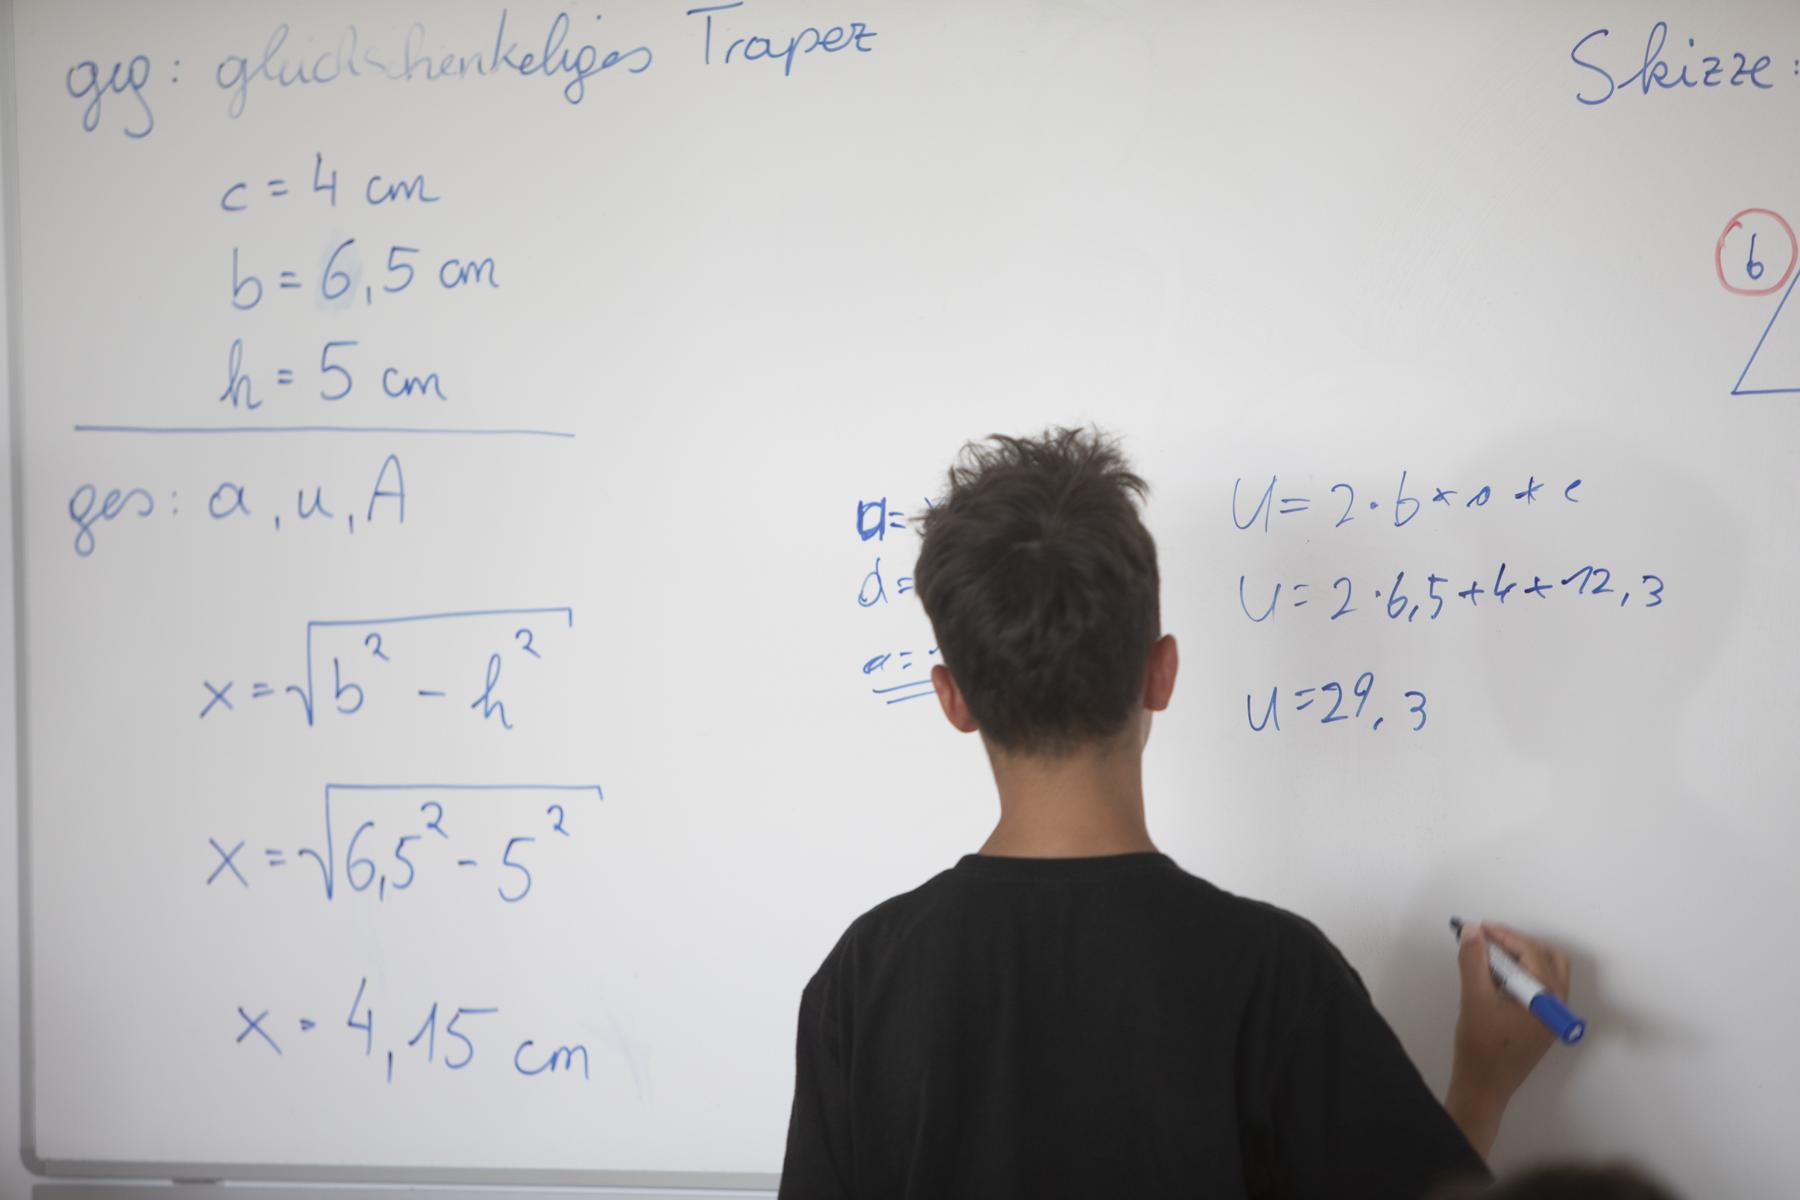 geg: gleichschenkeliges Trapez
c = 4 cm
b = 6,5 cm
h = 5 cm
ges: a, u, A
x = √b² - h²
x = √6,5² - 5²
x = 4,15 cm
a=
a=
a=
U = 2·b+a+c
U = 2·6,5+4+12,3
U = 29,3
Skizze:
b